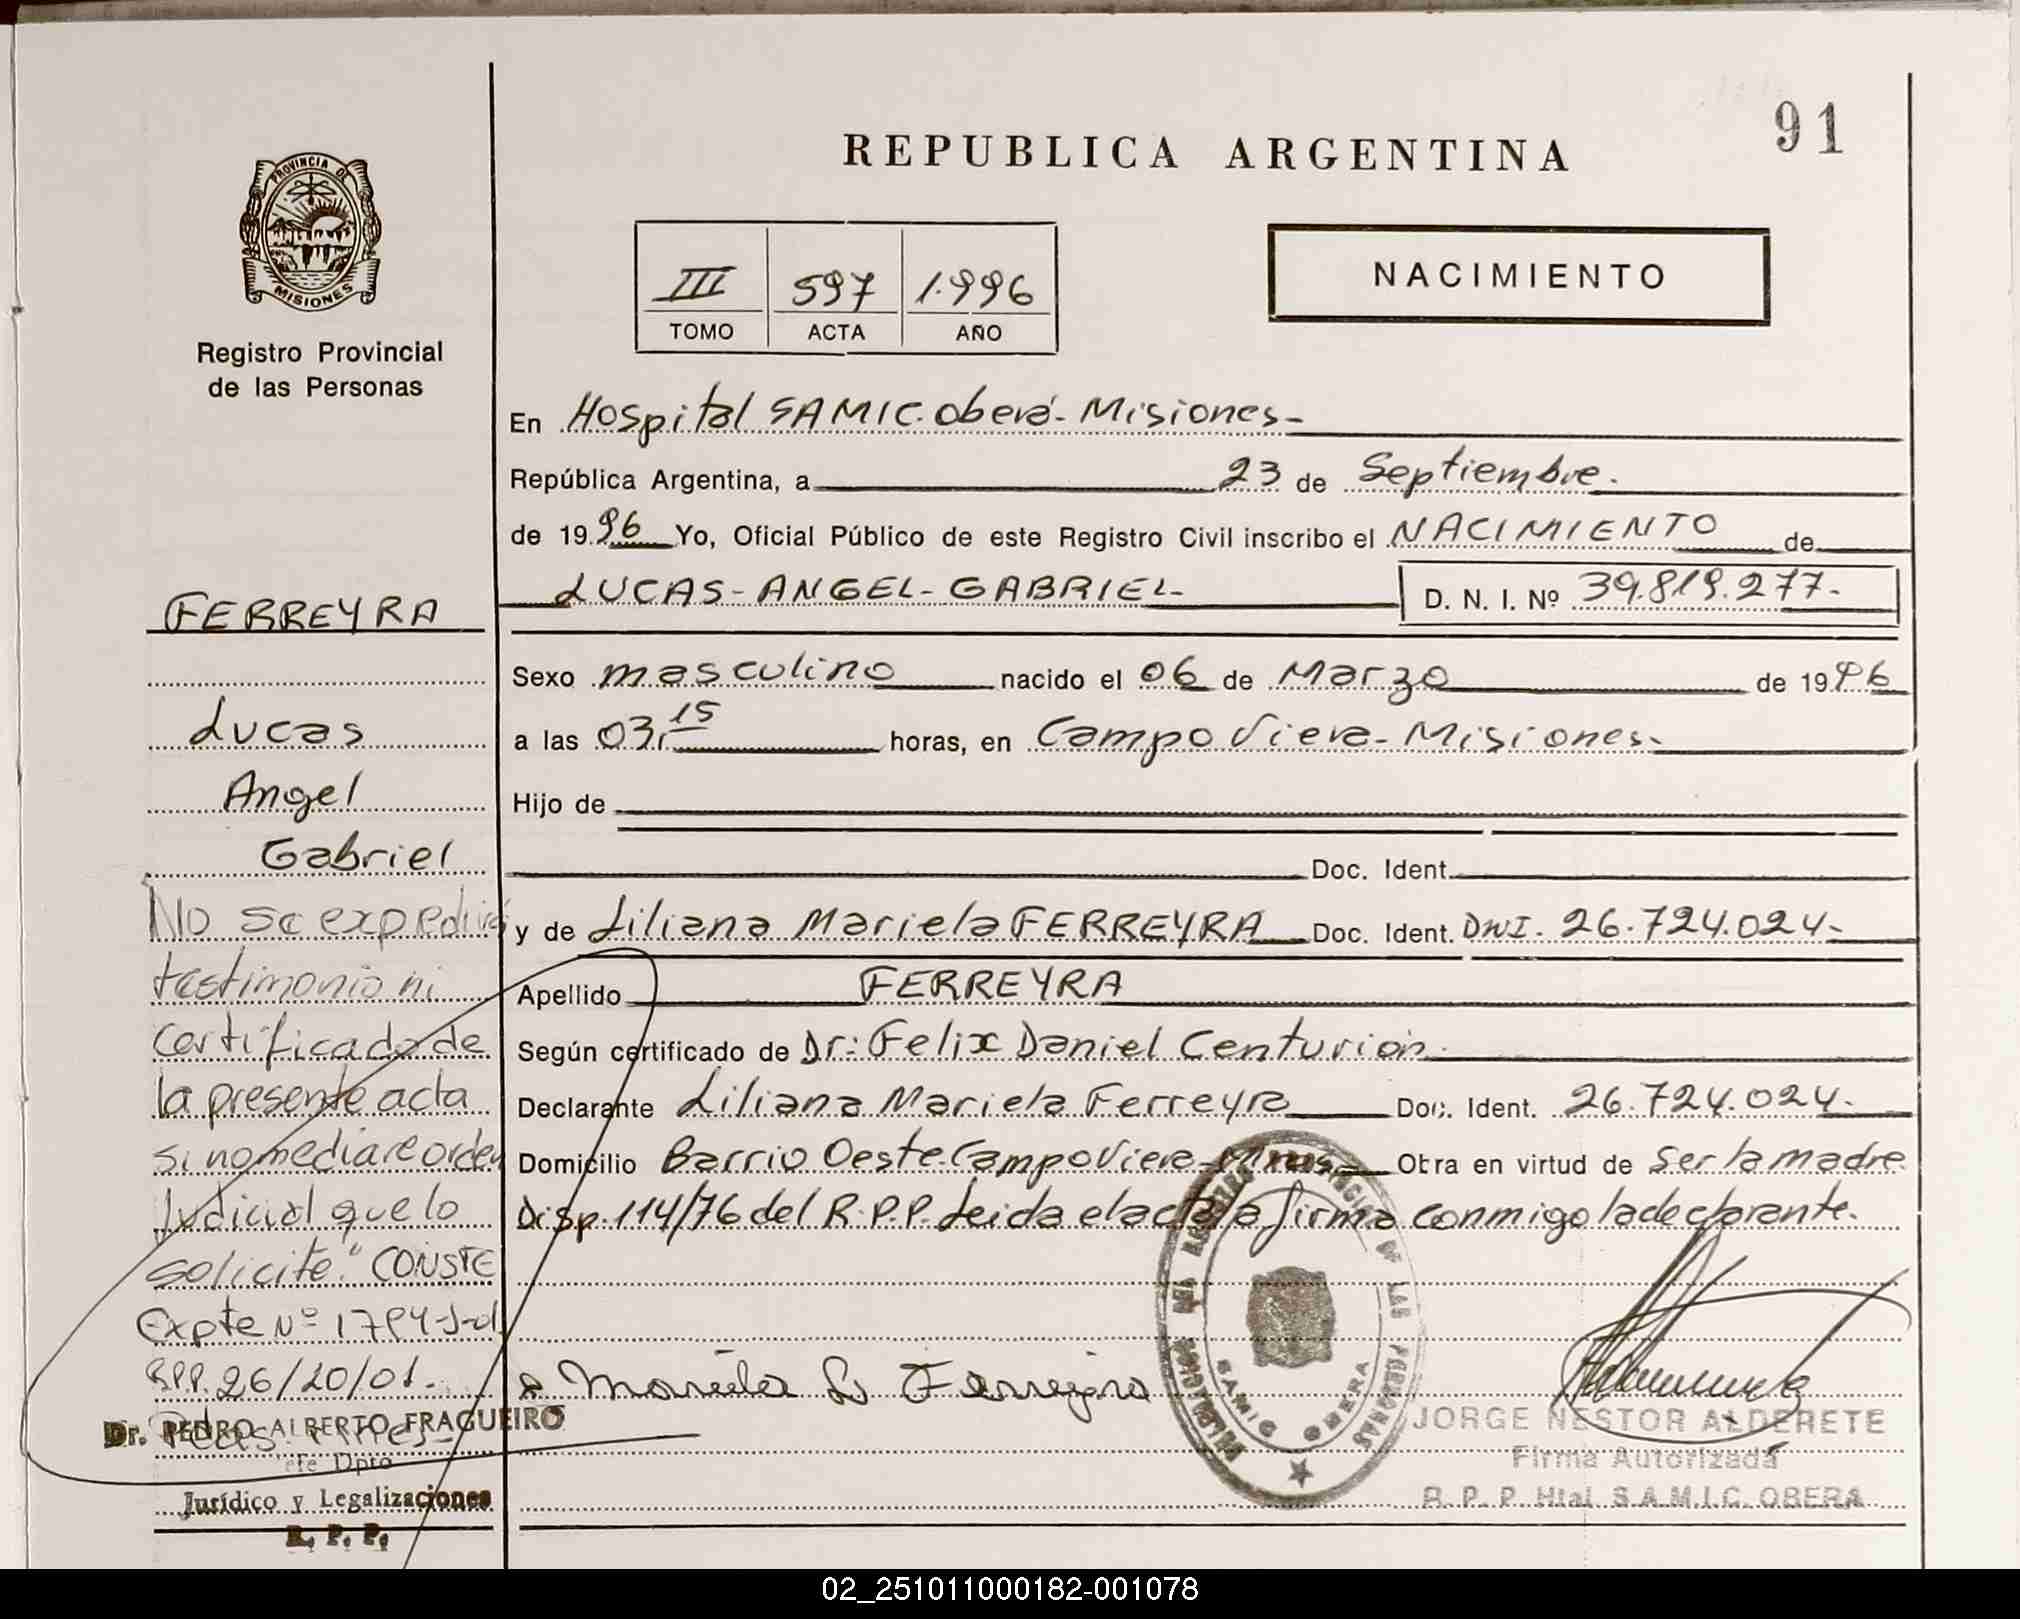 91
REPUBLICA ARGENTINA
PROVINCIA DE
MISIONES
Registro Provincial
de las Personas
III 597 1.996
TOMO ACTA AÑO
NACIMIENTO
En Hospital SAMIC. Oberá - Misiones -
República Argentina, a 23 de Septiembre.
de 19 96 Yo, Oficial Público de este Registro Civil inscribo el NACIMIENTO de
LUCAS - ANGEL - GABRIEL - D. N. I. Nº 39.819.277.-
Sexo masculino nacido el 06 de Marzo de 1996
a las 03,15 horas, en Campo Viera - Misiones.
Hijo de
Doc. Ident.
y de Liliana Mariela FERREYRA Doc. Ident. DNI. 26.724.024-
Apellido FERREYRA
Según certificado de Dr: Felix Daniel Centurión.
Declarante Liliana Mariela Ferreyra Doc. Ident. 26.724.024.
Domicilio Barrio Oeste. Campo Viera - Mnes - Obra en virtud de ser la madre
Disp. 114/76 del R.P.P. Leida el acta la firma conmigo la declarante.
Mariela L. Ferreyra
SAMIC OBERA
JORGE NESTOR ALDERETE
Firma Autorizada
R. P. P. Htal. S.A.M.I.C. OBERA
FERREYRA
Lucas
Angel
Gabriel
No se expedirá
testimonio ni
certificado de
la presente acta
si no mediare orden
Judicial que lo
solicite." CONSTE
Expte Nº
RPP. 26/10/01.-
Pdas. Mnes-
Dr. PEDRO ALBERTO FRAGUEIRO
Jefe Dpto
Jurídico y Legalizaciones
R. P. P.
02_251011000182-001078